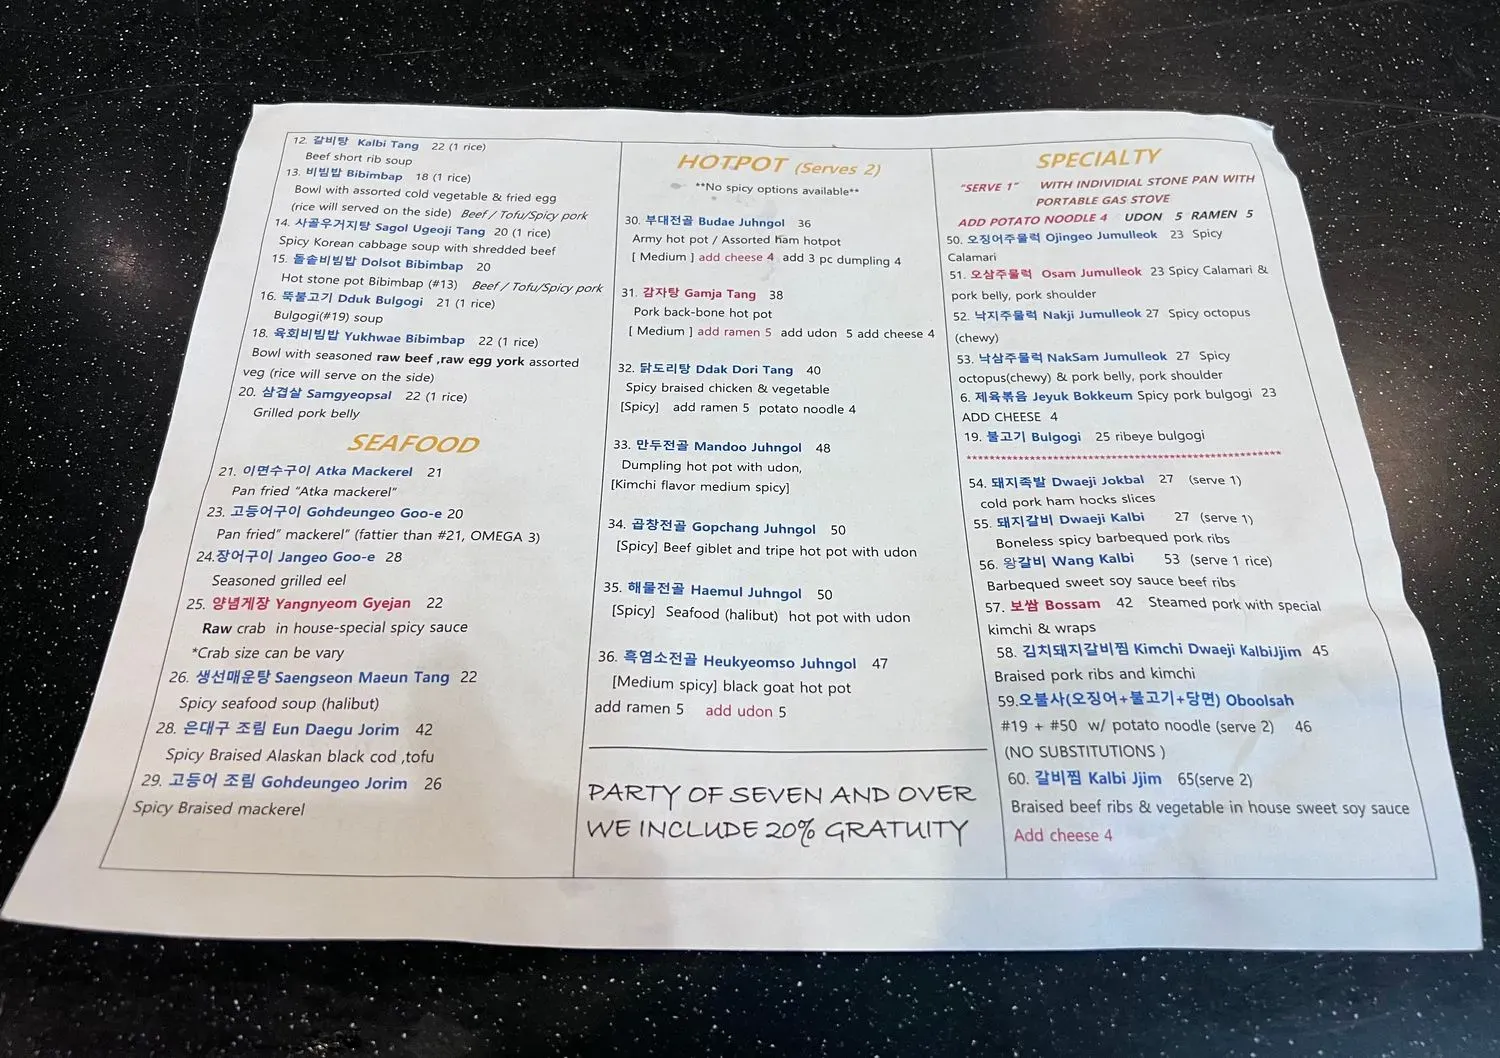 12. 갈비탕 Kalbi Tang 22 (1 rice)
Beef short rib soup
13. 비빔밥 Bibimbap 18 (1 rice)
Bowl with assorted cold vegetable & fried egg
(rice will served on the side) Beef / Tofu/Spicy pork
14. 사골우거지탕 Sagol Ugeoji Tang 20 (1 rice)
Spicy Korean cabbage soup with shredded beef
15. 돌솥비빔밥 Dolsot Bibimbap 20
Hot stone pot Bibimbap (#13) Beef / Tofu/Spicy pork
16. 뚝불고기 Dduk Bulgogi 21 (1 rice)
Bulgogi(#19) soup
18. 육회비빔밥 Yukhwae Bibimbap 22 (1 rice)
Bowl with seasoned raw beef ,raw egg york assorted
veg (rice will serve on the side)
20. 삼겹살 Samgyeopsal 22 (1 rice)
Grilled pork belly
SEAFOOD
21. 이면수구이 Atka Mackerel 21
Pan fried "Atka mackerel"
23. 고등어구이 Gohdeungeo Goo-e 20
Pan fried" mackerel" (fattier than #21, OMEGA 3)
24.장어구이 Jangeo Goo-e 28
Seasoned grilled eel
25. 양념게장 Yangnyeom Gyejan 22
Raw crab in house-special spicy sauce
*Crab size can be vary
26. 생선매운탕 Saengseon Maeun Tang 22
Spicy seafood soup (halibut)
28. 은대구 조림 Eun Daegu Jorim 42
Spicy Braised Alaskan black cod ,tofu
29. 고등어 조림 Gohdeungeo Jorim 26
Spicy Braised mackerel
HOTPOT (Serves 2)
**No spicy options available**
30. 부대전골 Budae Juhngol 36
Army hot pot / Assorted ham hotpot
[ Medium ] add cheese 4 add 3 pc dumpling 4
31. 감자탕 Gamja Tang 38
Pork back-bone hot pot
[ Medium ] add ramen 5 add udon 5 add cheese 4
32. 닭도리탕 Ddak Dori Tang 40
Spicy braised chicken & vegetable
[Spicy] add ramen 5 potato noodle 4
33. 만두전골 Mandoo Juhngol 48
Dumpling hot pot with udon,
[Kimchi flavor medium spicy]
34. 곱창전골 Gopchang Juhngol 50
[Spicy] Beef giblet and tripe hot pot with udon
35. 해물전골 Haemul Juhngol 50
[Spicy] Seafood (halibut) hot pot with udon
36. 흑염소전골 Heukyeomso Juhngol 47
[Medium spicy] black goat hot pot
add ramen 5 add udon 5
PARTY OF SEVEN AND OVER
WE INCLUDE 20% GRATUITY
SPECIALTY
"SERVE 1" WITH INDIVIDIAL STONE PAN WITH
PORTABLE GAS STOVE
ADD POTATO NOODLE 4 UDON 5 RAMEN 5
50. 오징어주물럭 Ojingeo Jumulleok 23 Spicy
Calamari
51. 오삼주물럭 Osam Jumulleok 23 Spicy Calamari &
pork belly, pork shoulder
52. 낙지주물럭 Nakji Jumulleok 27 Spicy octopus
(chewy)
53. 낙삼주물럭 NakSam Jumulleok 27 Spicy
octopus(chewy) & pork belly, pork shoulder
6. 제육볶음 Jeyuk Bokkeum Spicy pork bulgogi 23
ADD CHEESE 4
19. 불고기 Bulgogi 25 ribeye bulgogi
54. 돼지족발 Dwaeji Jokbal 27 (serve 1)
cold pork ham hocks slices
55. 돼지갈비 Dwaeji Kalbi 27 (serve 1)
Boneless spicy barbequed pork ribs
56. 왕갈비 Wang Kalbi 53 (serve 1 rice)
Barbequed sweet soy sauce beef ribs
57. 보쌈 Bossam 42 Steamed pork with special
kimchi & wraps
58. 김치돼지갈비찜 Kimchi Dwaeji KalbiJjim 45
Braised pork ribs and kimchi
59.오불사(오징어+불고기+당면) Oboolsah
#19 + #50 w/ potato noodle (serve 2) 46
(NO SUBSTITUTIONS )
60. 갈비찜 Kalbi Jjim 65(serve 2)
Braised beef ribs & vegetable in house sweet soy sauce
Add cheese 4